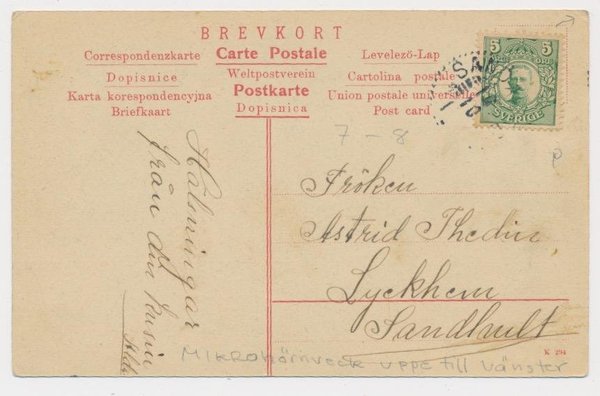 BREVKORT
Correspondenzkarte
Carte Postale
Levelező-Lap
Dopisnice
Weltpostverein
Cartolina postale
Karta korespondencyjna
Postkarte
Union postale universelle
Briefkaart
Dopisnica
Post card
5
5
SVERIGE
SAND
7-8
Fröken
Astrid Thedin
Lyckhem
Sandhult
Hälsningar
från din kusin
K 294
Mikrohörnveck uppe till vänster